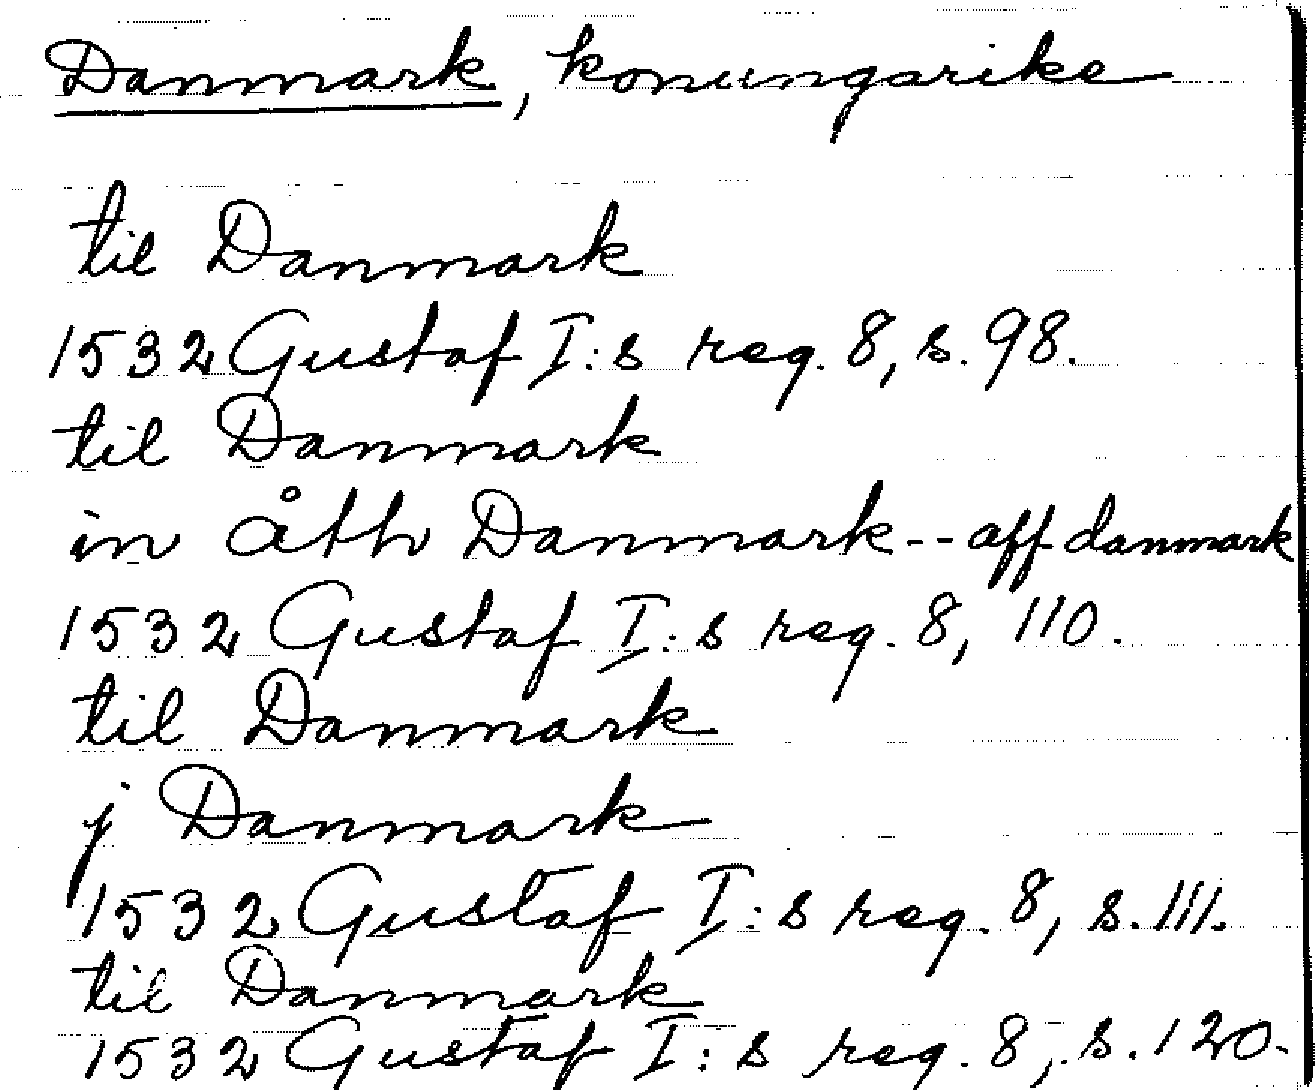 Danmark, konungarike
til Danmark
1532 Gustaf I:s reg. 8, s. 98.
til Danmark
in åth Danmark -- aff danmark
1532 Gustaf I:s reg. 8, 110.
til Danmark
j Danmark
1532 Gustaf I:s reg. 8, s. 111.
til Danmark
1532 Gustaf I:s reg. 8, s. 120.